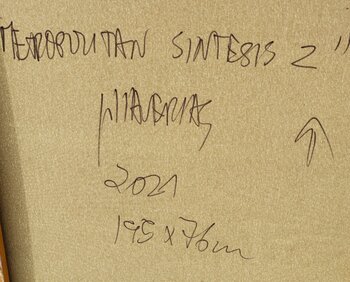 METROPOLITAN SINTESIS 2"
2021
195 x 76 cm